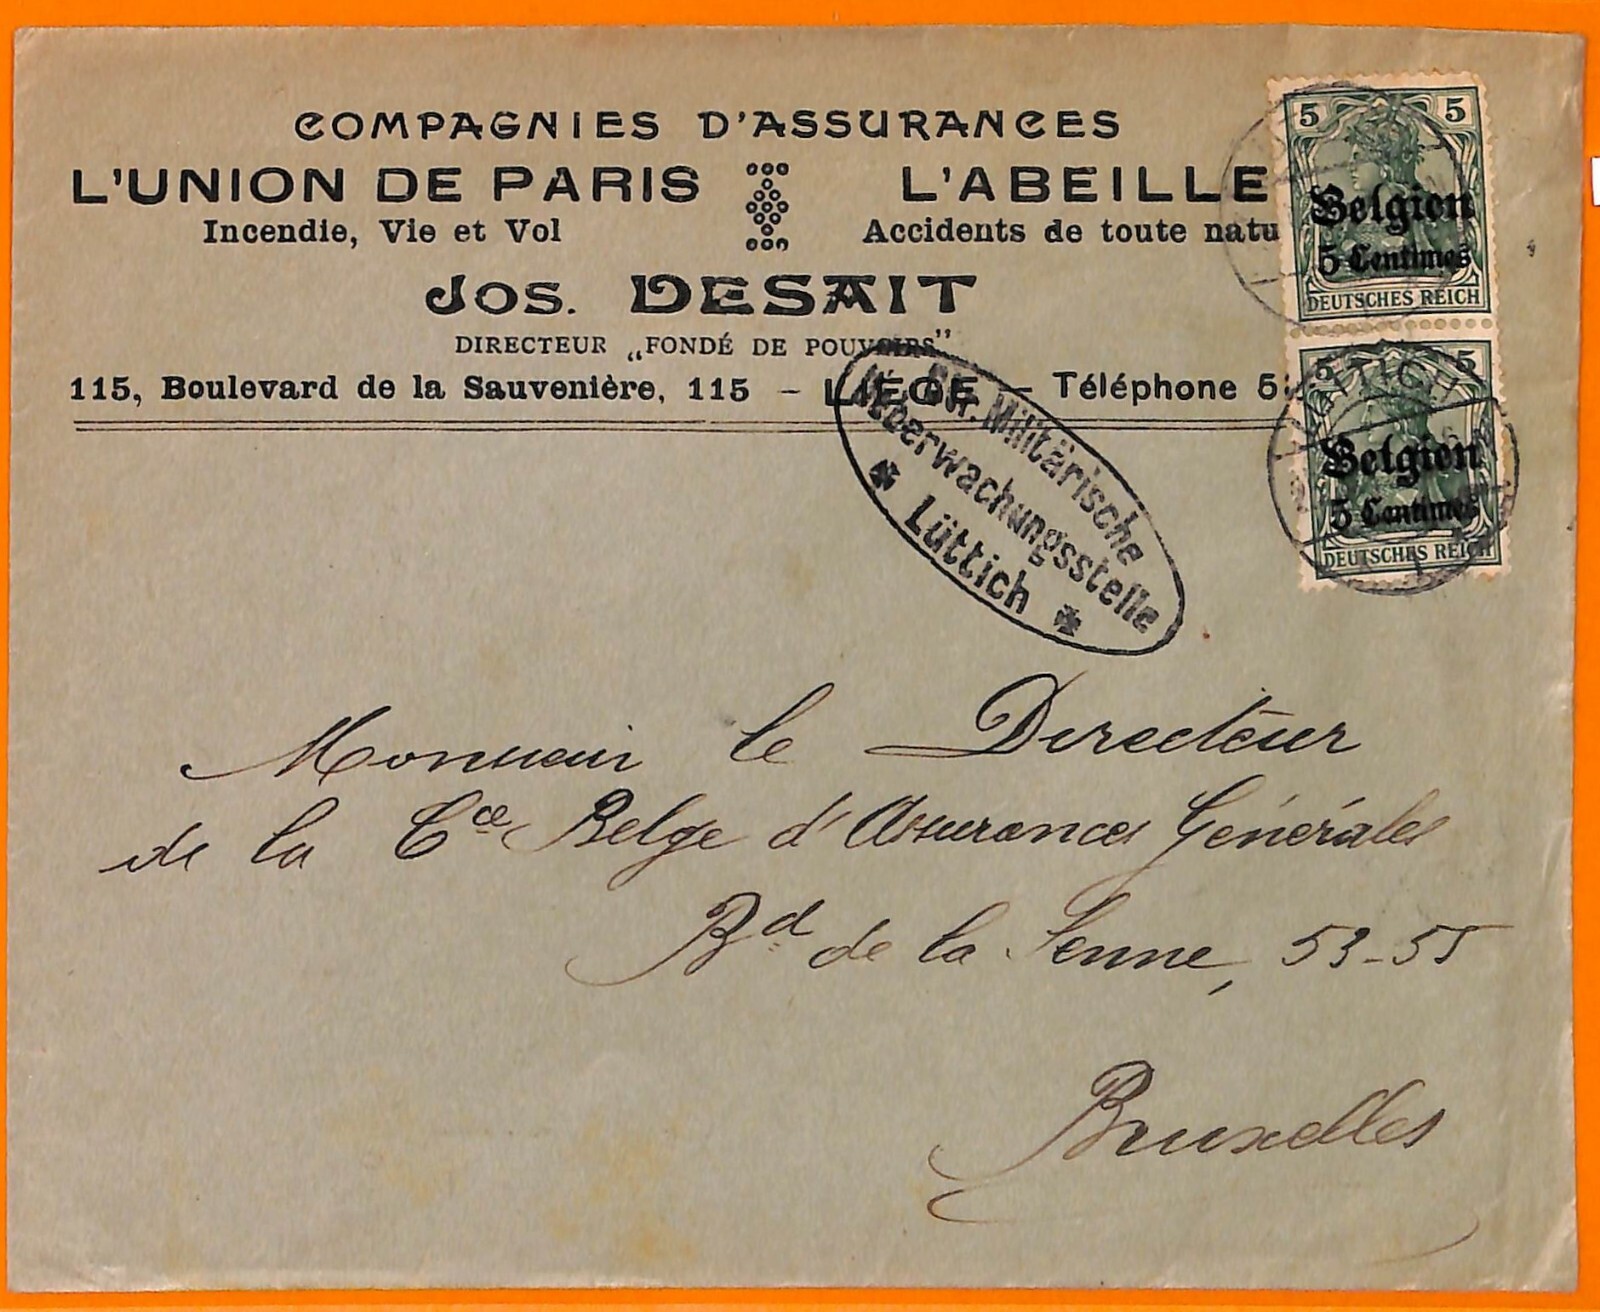 COMPAGNIES D'ASSURANCES
L'UNION DE PARIS
Incendie, Vie et Vol
L'ABEILLE
Accidents de toute natu
JOS. DESAIT
DIRECTEUR „FONDÉ DE POUVOIRS"
115, Boulevard de la Sauvenière, 115 - LIÉGE - Téléphone 5
5 5
Belgien
5 Centimes
DEUTSCHES REICH
5 5
LÜTTICH
Belgien
5 Centimes
DEUTSCHES REICH
Militärische
Ueberwachungsstelle
* Lüttich *
Monsieur le Directeur
de la Cie Belge d'Assurances Générales
Bd de la Senne, 53-55
Bruxelles